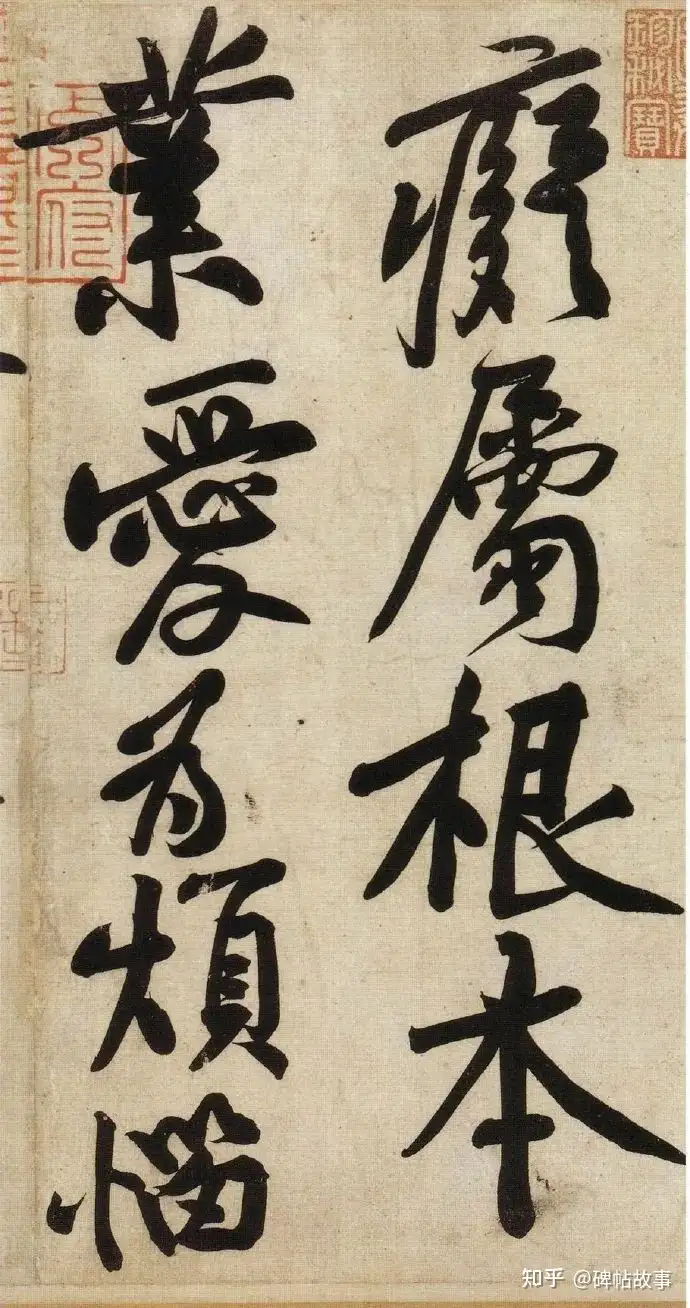 癡屬根本
業愛為煩惱
知乎 @碑帖故事